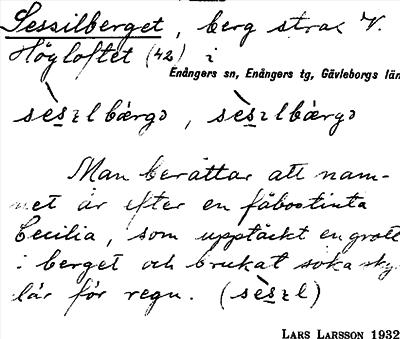 Sessilberget, berg strax V.
Högloftet (42) i
Enångers sn, Enångers tg, Gävleborgs län
Man berättar att nam-
net är efter en fäbostinta
Cecilia, som upptäckt en grott
i berget och brukat söka sky
lár för regn. (
LARS LARSSON 1932